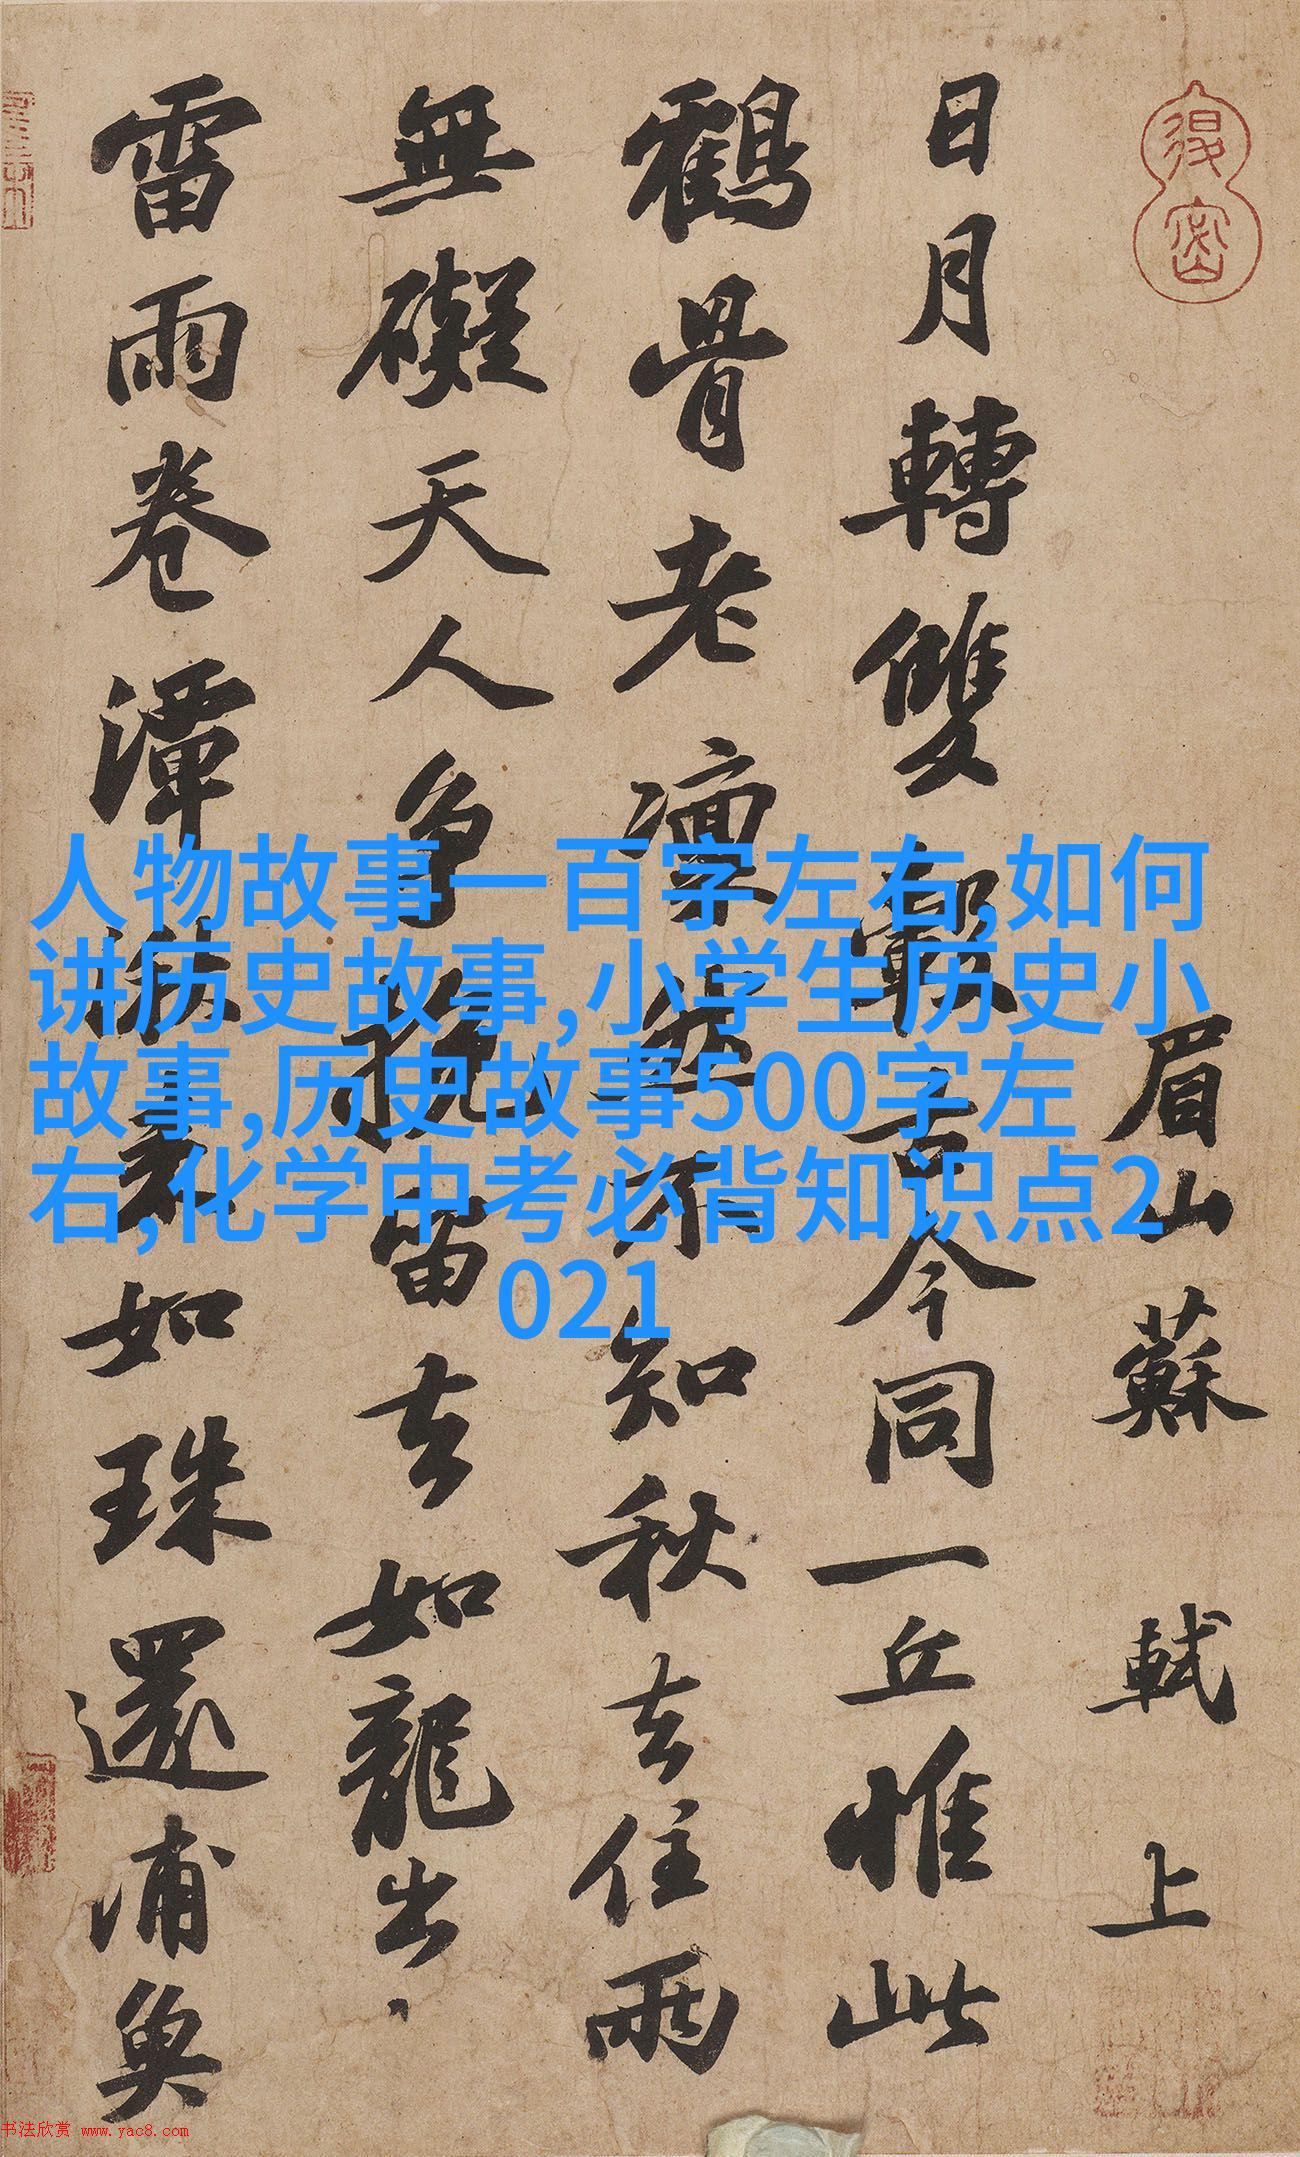 眉山蘇軾上
日月轉雙轂古今同一丘惟此
鶴骨老凜然不知秋去住兩
無礙天人爭挽留去如龍出
雷雨卷潭湫來如珠還浦魚
人物故事一百字左右,如何
讲历史故事,小学生历史小
故事,历史故事500字左
右,化学中考必背知识点2
021
书法欣赏 www.yac8.com